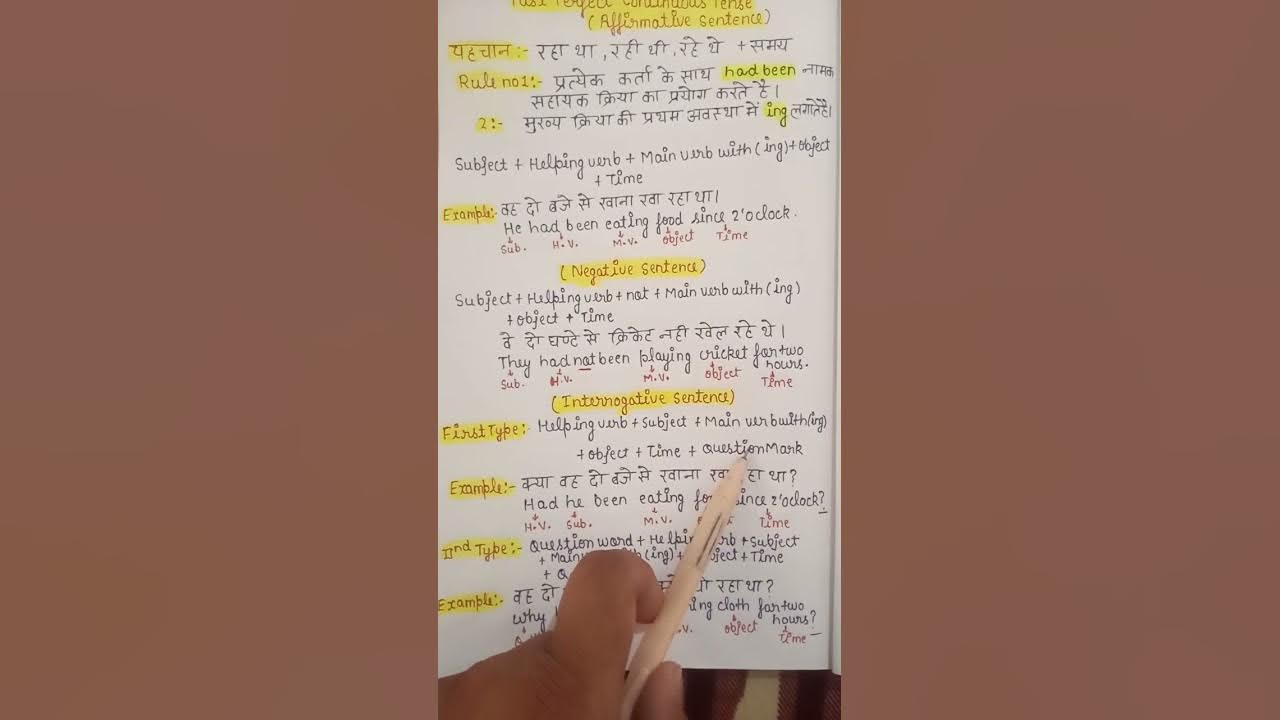 Past Perfect Continuous Tense
(Affirmative Sentence)
पहचान :- रहा था, रही थी, रहे थे + समय
Rule no 1:- प्रत्येक कर्ता के साथ had been नामक
सहायक क्रिया का प्रयोग करते है।
2:- मुख्य क्रिया की प्रथम अवस्था में ing लगाते है।
Subject + Helping verb + Main verb with (ing) + Object
+ Time
Example:- वह दो बजे से खाना खा रहा था।
He had been eating food since 2'o clock.
Sub. H.V. M.V. object Time
(Negative Sentence)
Subject + Helping verb + not + Main verb with (ing)
+ object + Time
वे दो घण्टे से क्रिकेट नही खेल रहे थे।
They had not been playing cricket for two
hours.
Sub. H.V. M.V. object Time
(Interrogative Sentence)
First Type:- Helping verb + Subject + Main verb with (ing)
+ object + Time + Question Mark
Example:- क्या वह दो बजे से खाना था?
Had he been eating since 2'oclock?
H.V. Sub. M.V. Time
IInd Type:- Question word + + Subject
+ (ing) + + Time
+
Example:- वह दो रहा था?
Why cloth for two
hours?
object Time